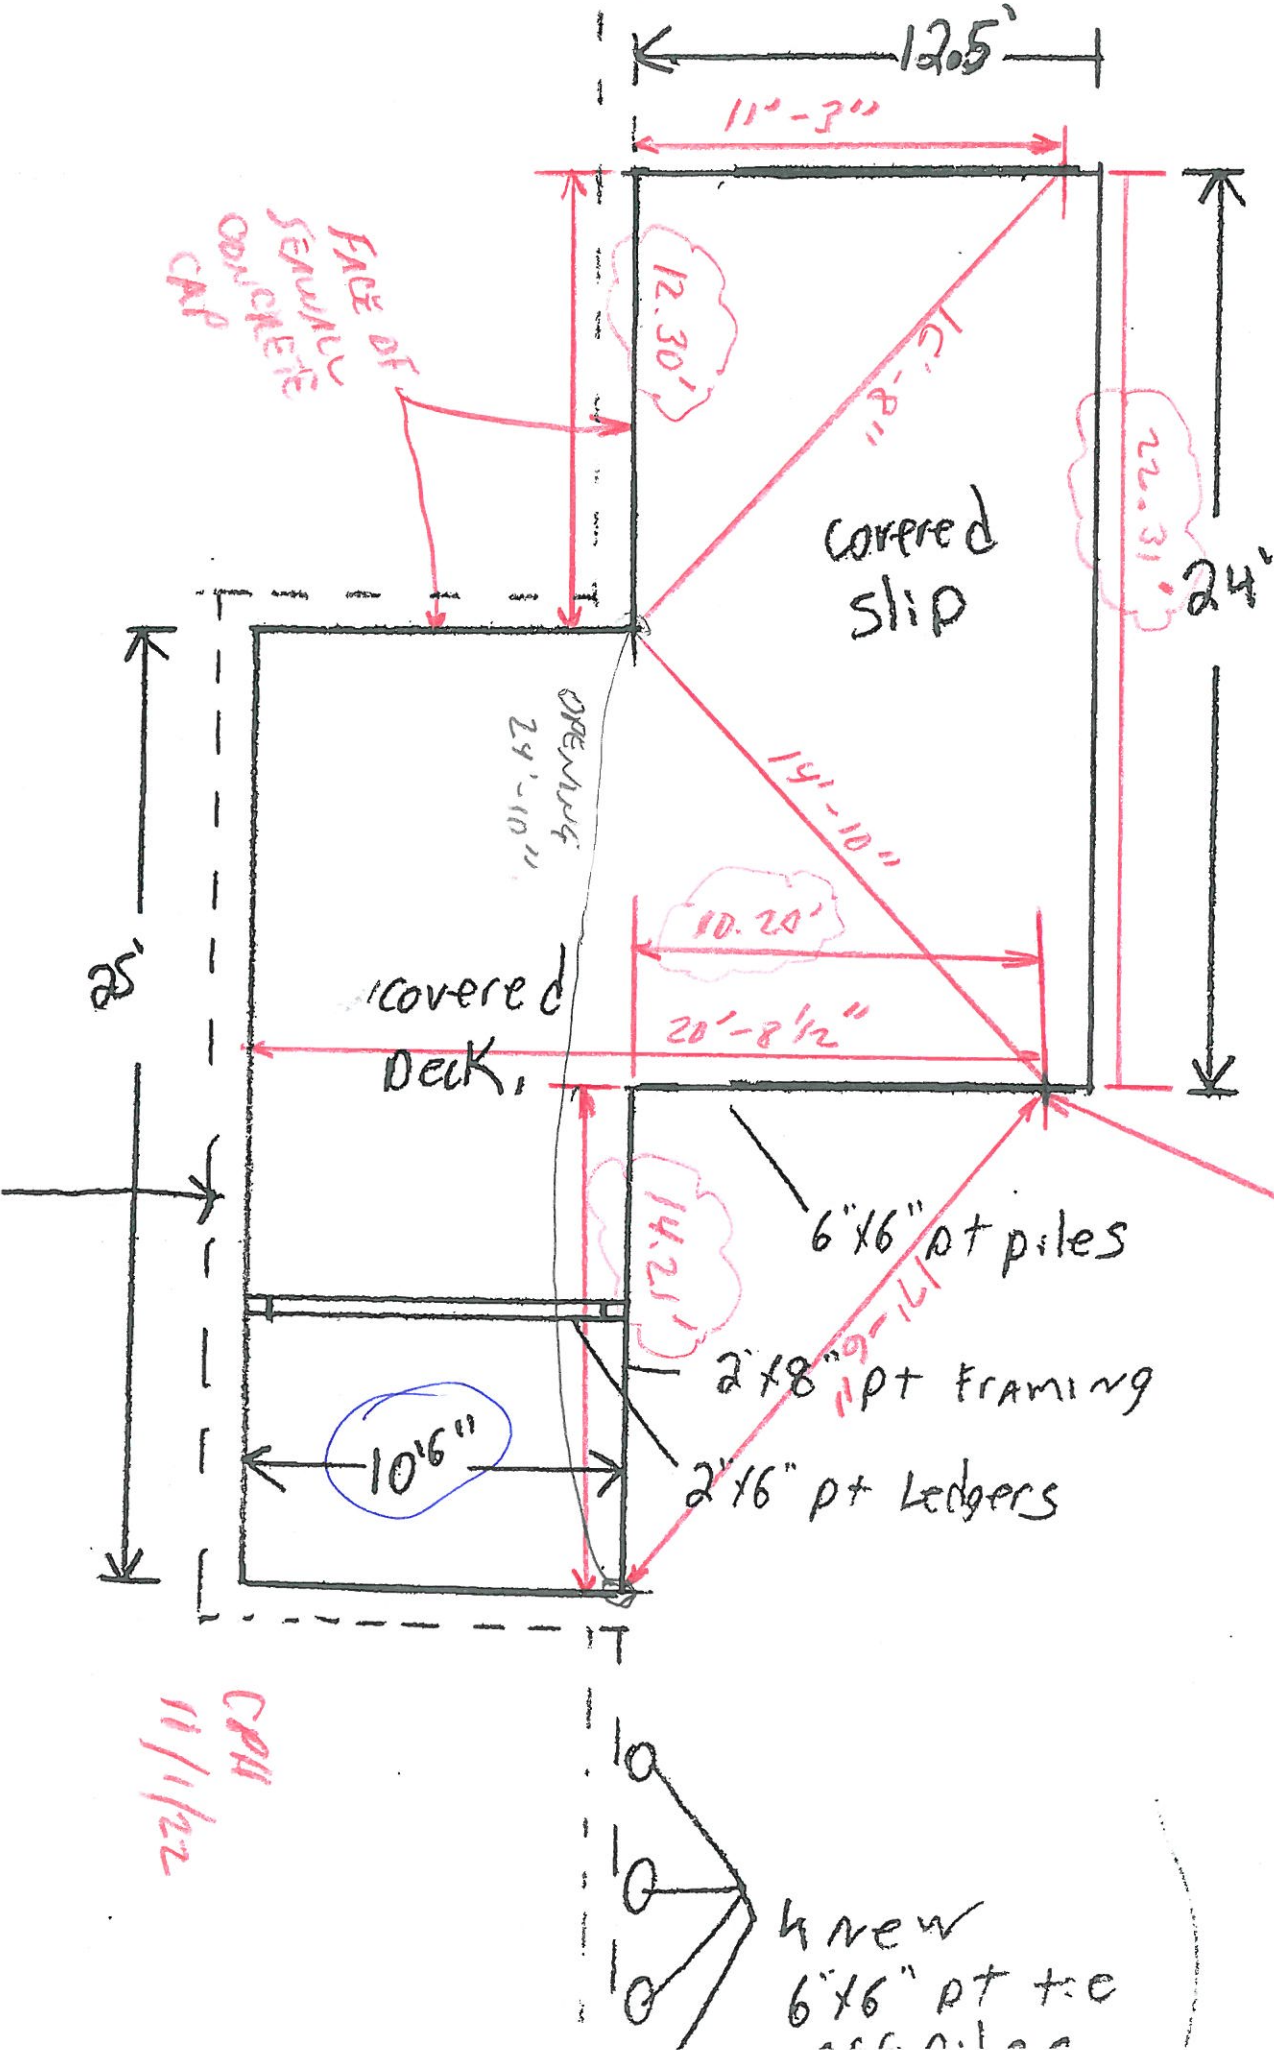 12.5'
11'-3"
FACE OF
SEAWALL
CONCRETE
CAP
12.30'
16'-8"
22.31'
covered
slip
24'
OPENING
24'-10"
14'-10"
10.20'
25'
covered
Deck.
20'-8 1/2"
6"x6" pt piles
14.21'
17'-6"
2"x8" pt FRAMING
10'6"
2"x6" pt Ledgers
11/1/22
4 new
6"x6" pt tie